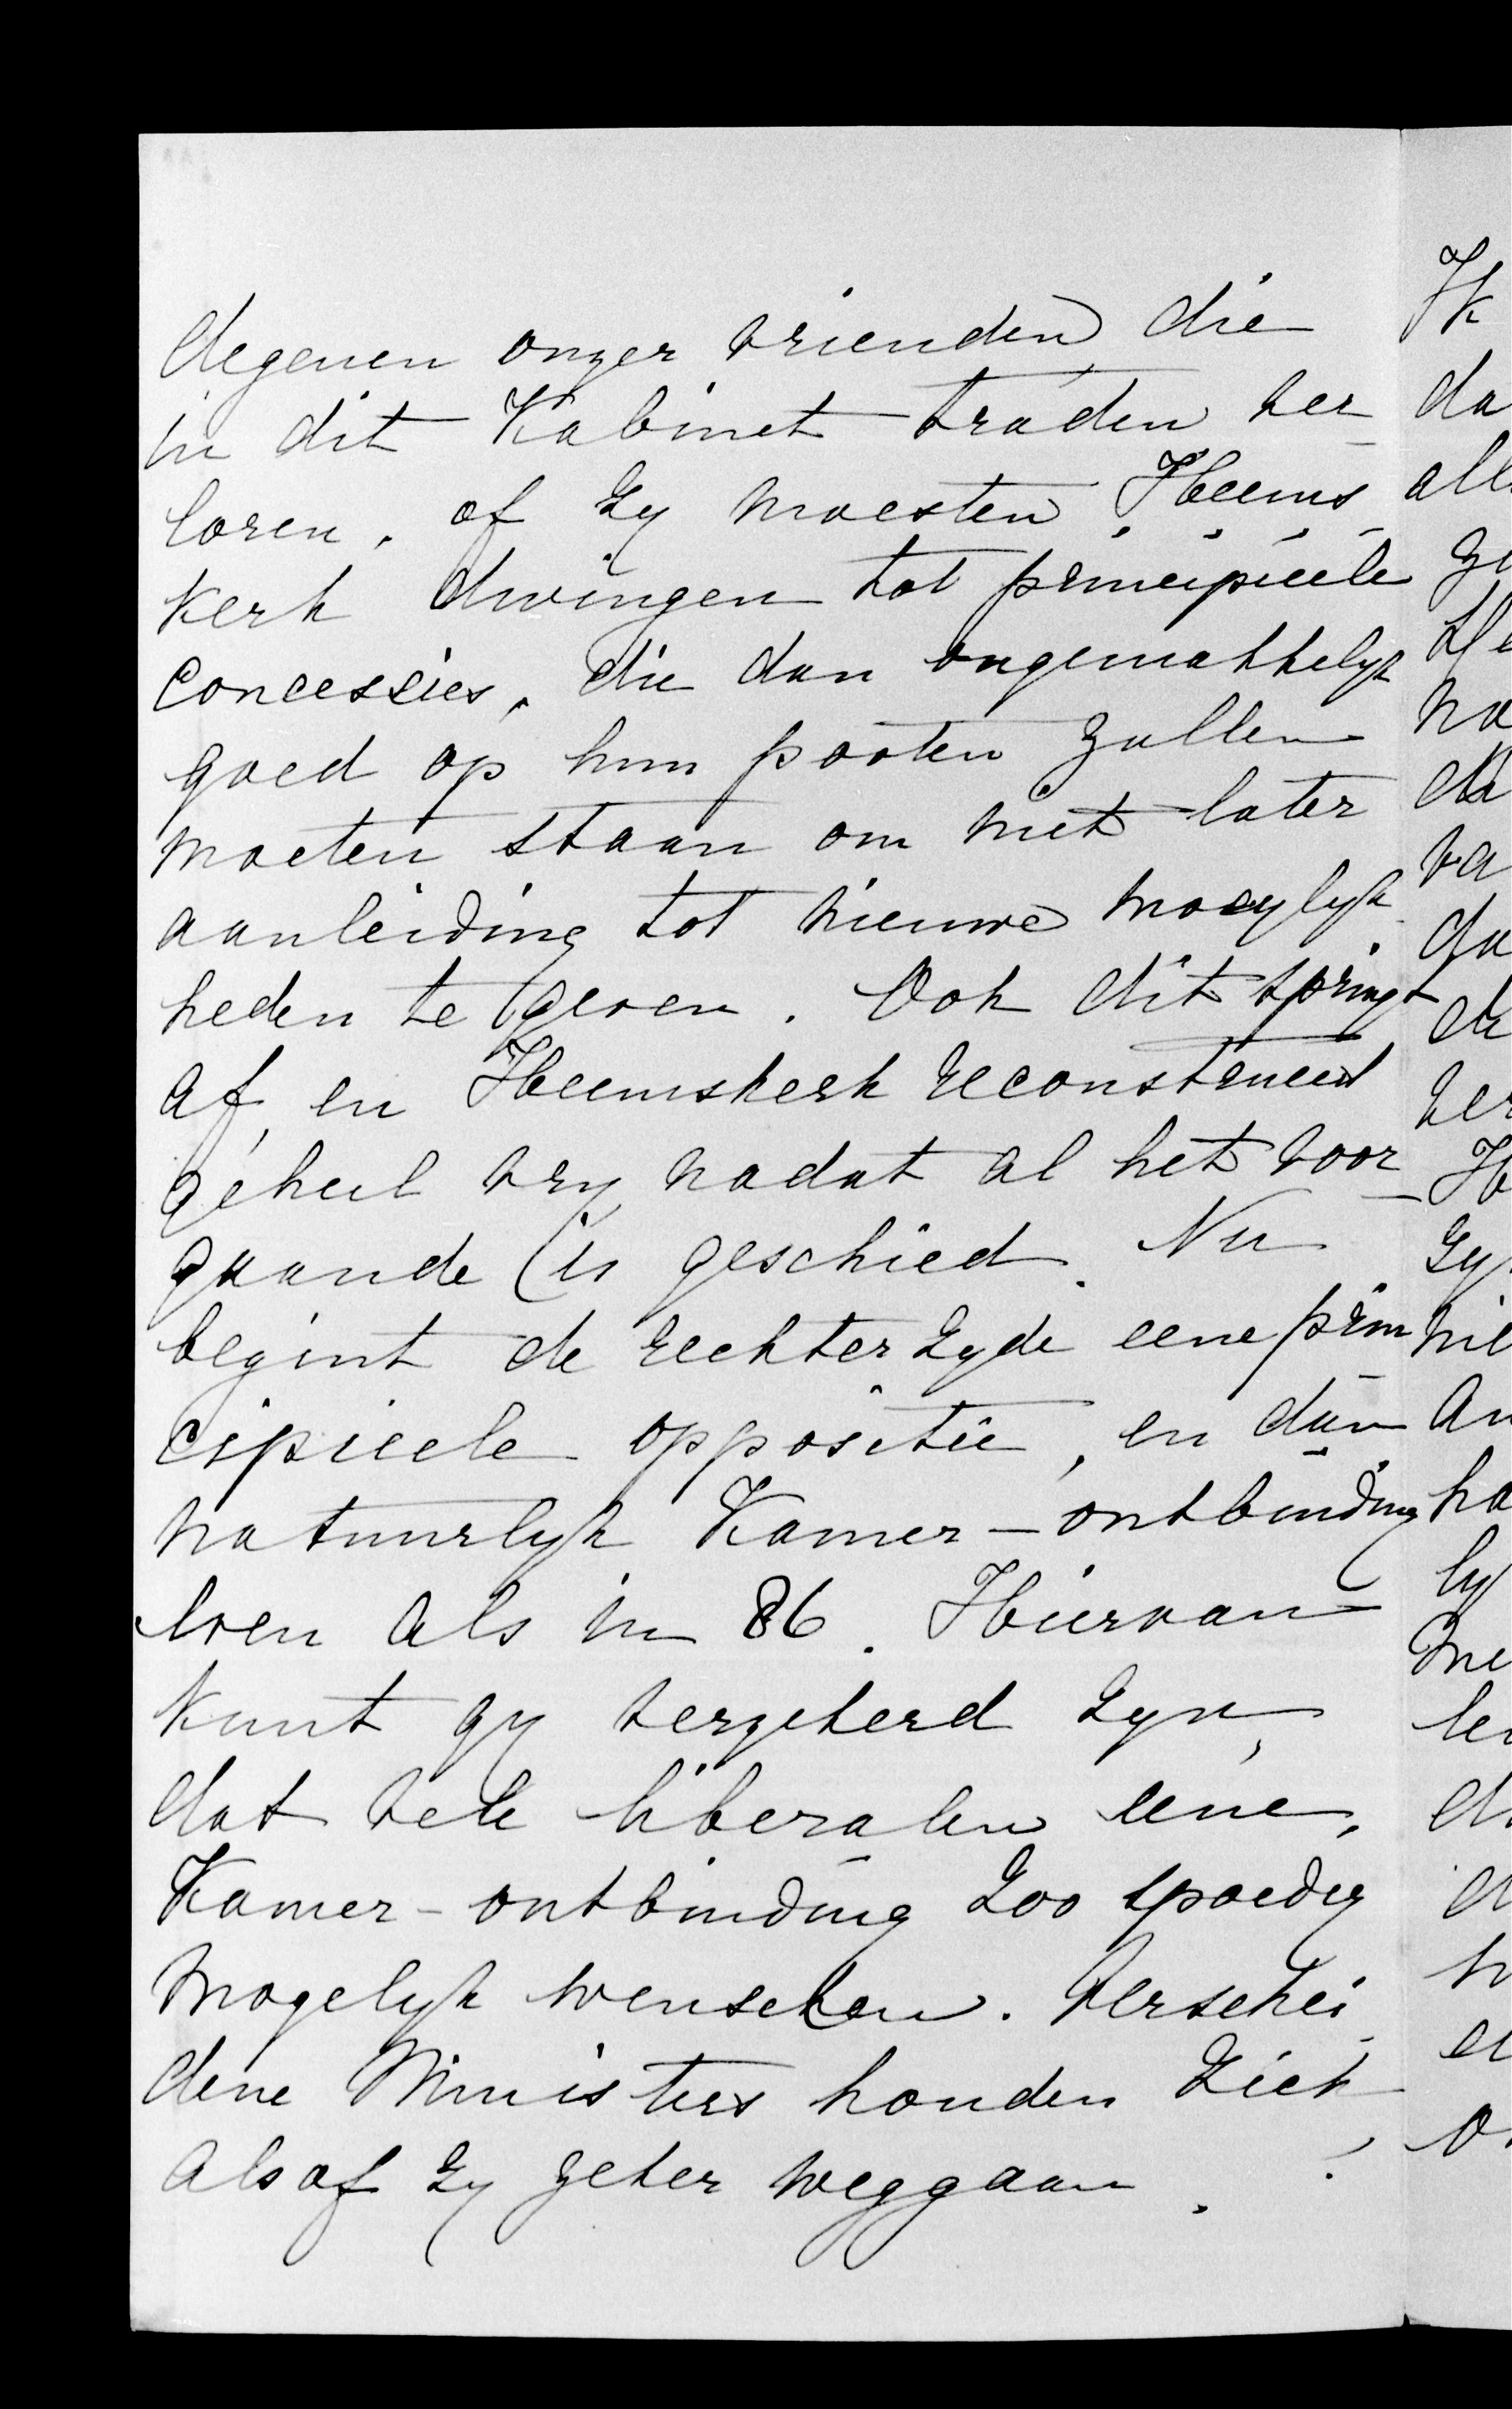 degenen onzer vrienden die
in dit Kabinet traden ver-
loren, of zy moesten Heems-
kerk dwingen tot principieele
concessies, die dan ongemakkelyk
goed op hun pooten zullen
moeten staan om niet later
aanleiding tot nieuwe moeylyk-
heden te geven. Ook dit springt
af, en Heemskerk reconstrueert
geheel vry, nadat al het voor-
gaande is geschied. Nu
begint de rechterzyde eene prin-
cipieele oppositie, en dan
natuurlyk Kamer-ontbinding
even als in 86. Hiervan
kunt gy verzekerd zyn,
dat vele liberalen eene
Kamer-ontbinding zoo spoedig
mogelyk wenschen. Verschei-
dene Ministers houden zich
alsof zy zeker weggaan.
Ik
da